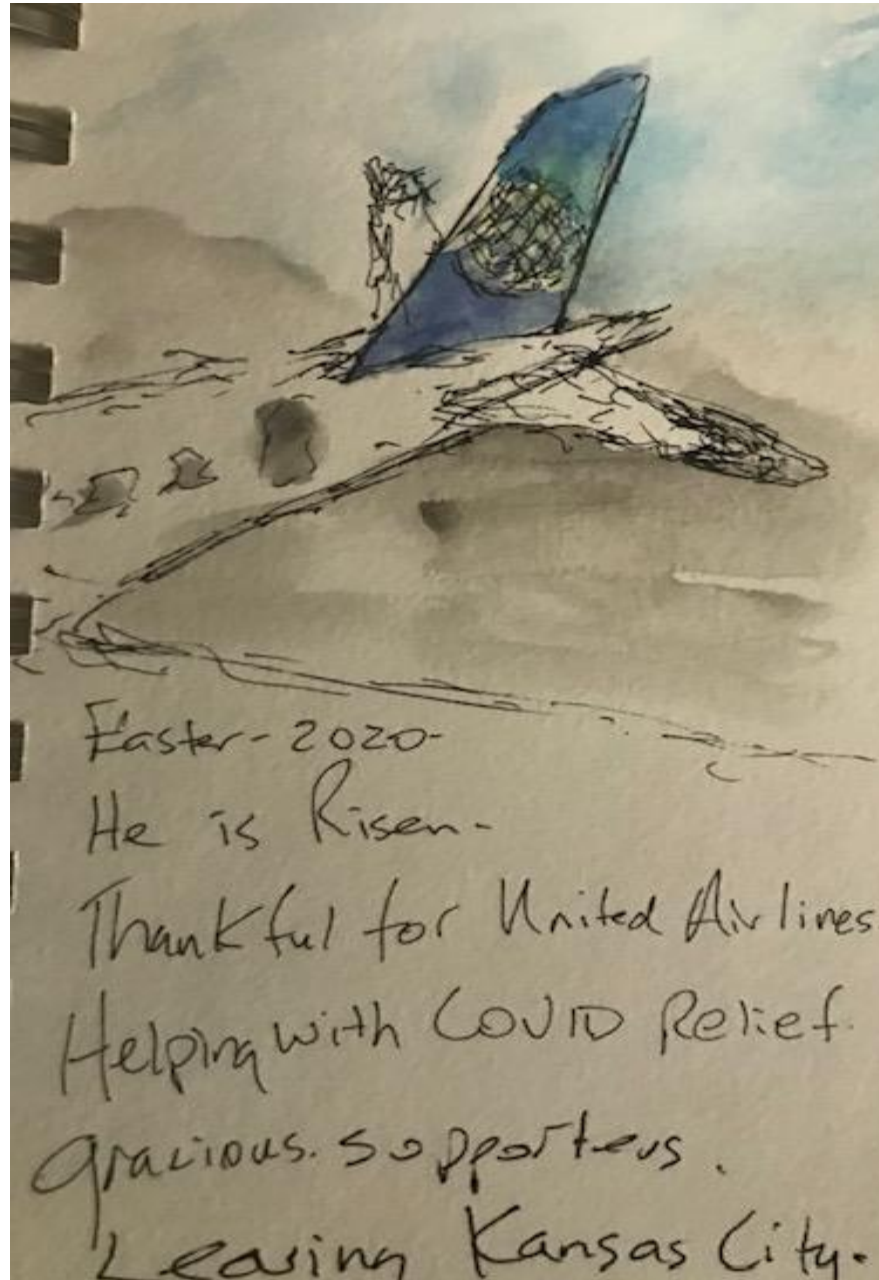 Easter - 2020 -
He is Risen -
Thankful for United Airlines
Helping with COVID Relief.
gracious. supporters.
Leaving Kansas City.